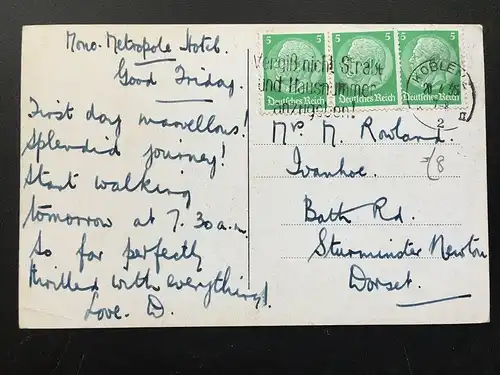 Mono-Metropole Hotel.
Good Friday.
First day marvellous!
Splendid journey!
Start walking
tomorrow at 7.30 a.m.
So far perfectly
thrilled with everything!
Love. D.
5 5 5
Deutsches Reich Deutsches Reich Deutsches Reich
Vergiß nicht Straße
und Hausnummer
anzugeben!
KOBLENZ
2
M. Rowland.
Ivanhoe.
Bath Rd.
Sturminster Newton
Dorset.